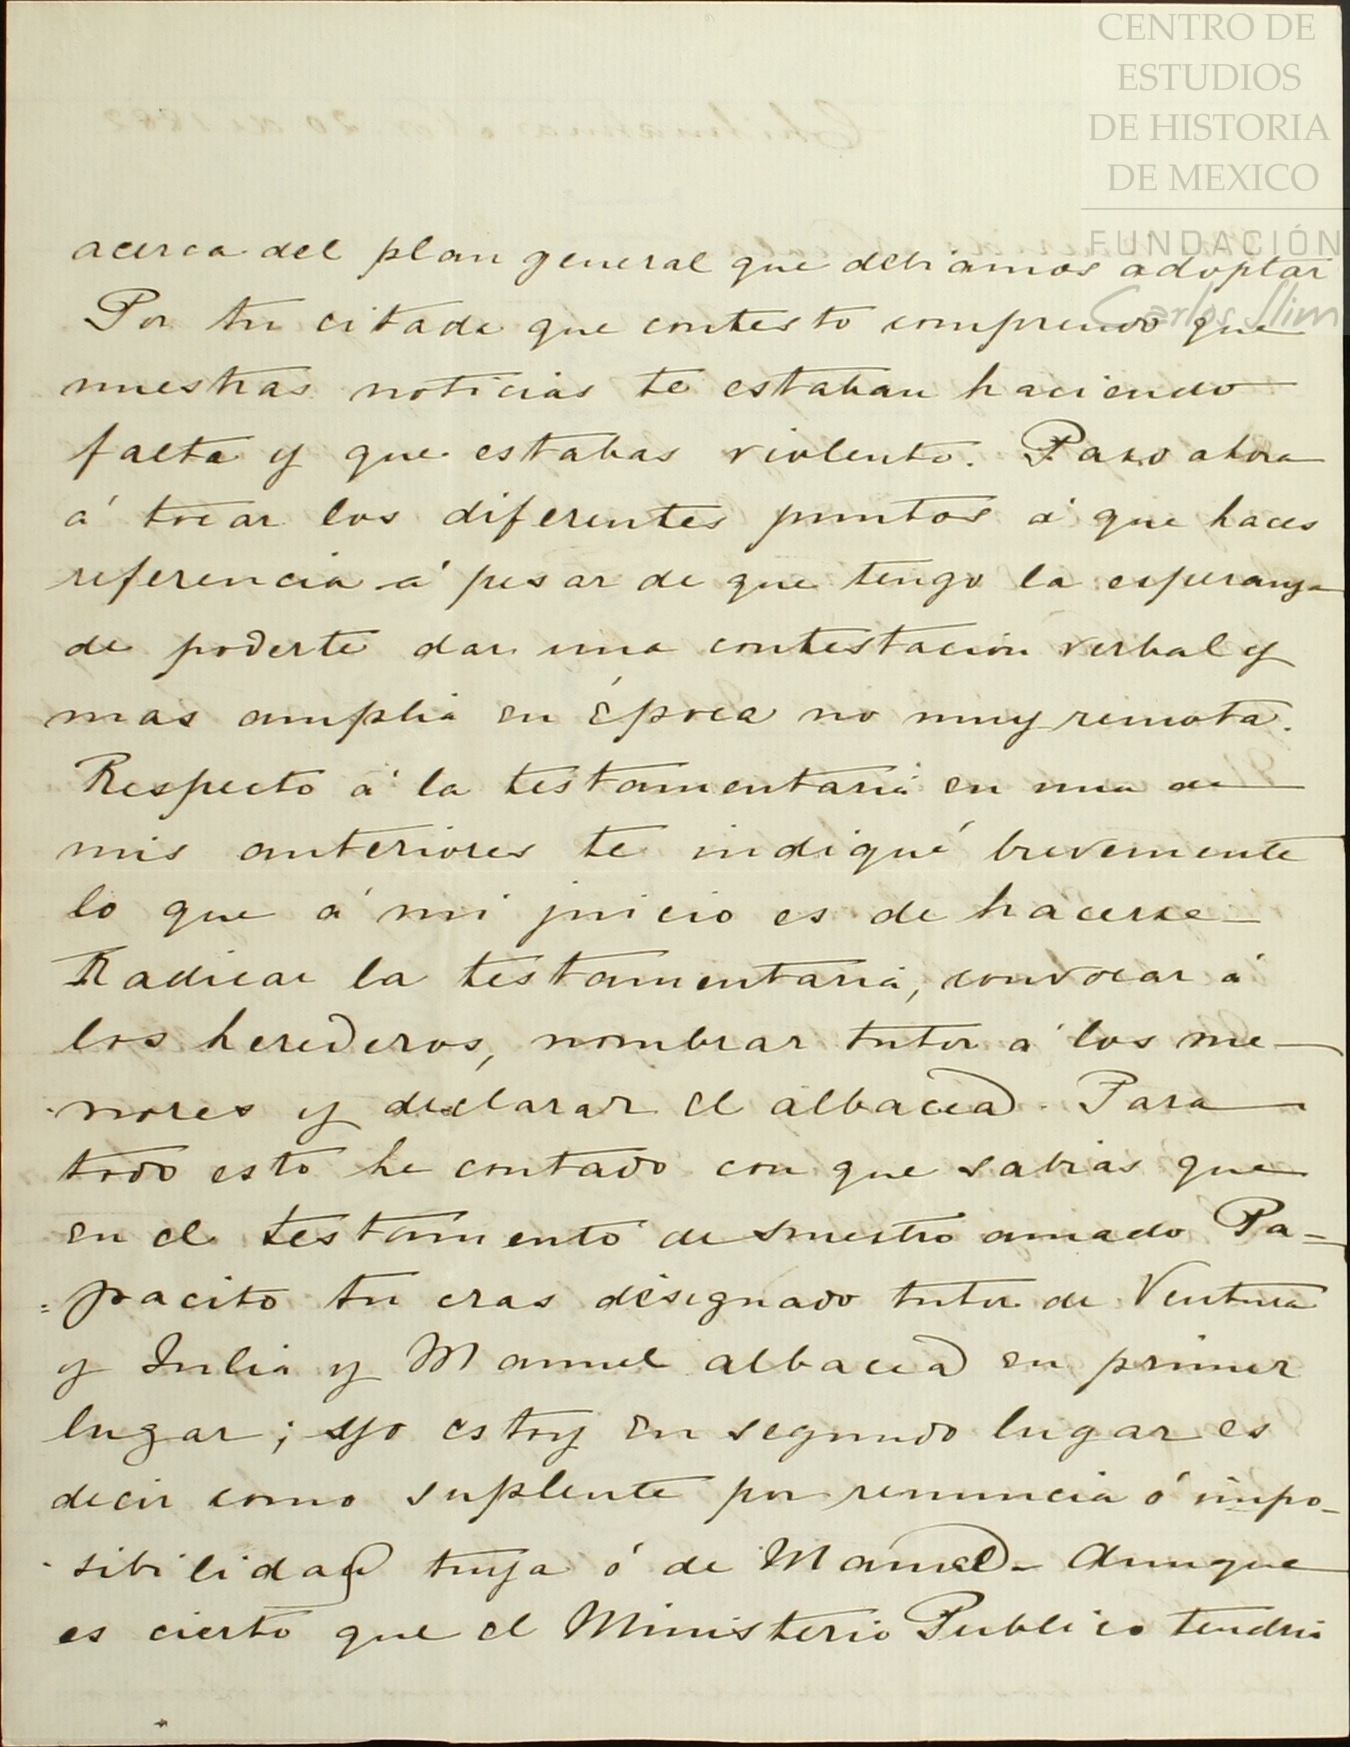 CENTRO DE
ESTUDIOS
DE HISTORIA
DE MEXICO
FUNDACIÓN
Carlos Slim
acerca del plan general que debiamos adoptar
Por tu citada que contesto comprendo que
nuestras noticias te estaban haciendo
falta y que estabas violento. Paso ahora
á tocar los diferentes puntos á que haces
referencia á pesar de que tengo la esperanza
de poderte dar una contestacion verbal y
mas amplia en época no muy remota.
Respecto á la testamentaria en una de
mis anteriores te indiqué brevemente
lo que á mi juicio es de hacerse
Radicar la testamentaria, convocar á
los herederos, nombrar tutor á los me-
nores y declarar el albacea. Para
todo esto he contado con que sabias que
en el testamento de nuestro amado Pa=
=pacito tu eras designado tutor de Ventura
y Julia y Manuel albacea en primer
lugar; yo estoy en segundo lugar es
decir como suplente por renuncia ó impo-
sibilidad tuya ó de Manuel. Aunque
es cierto que el Ministerio Publico tendria